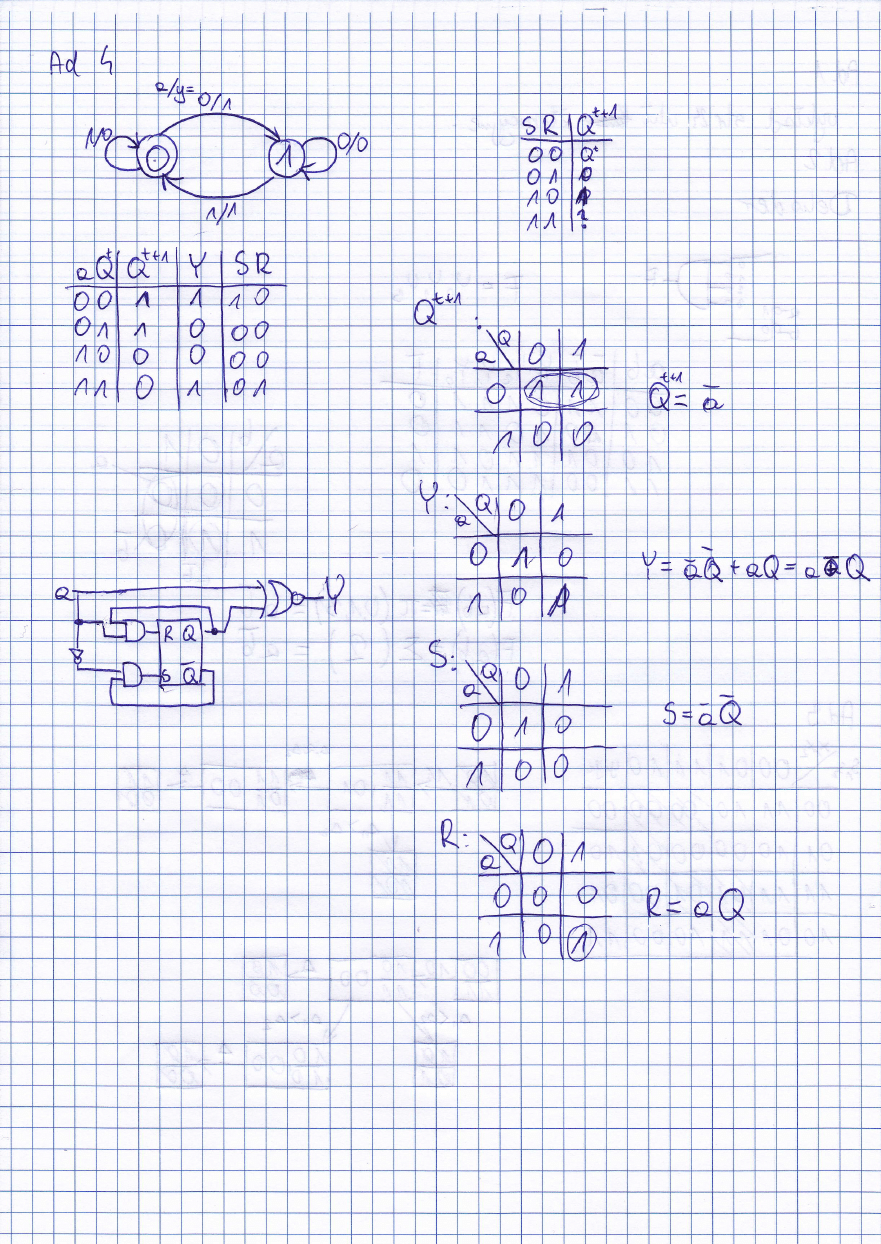 Ad 4
a/y= 0/1
1/0
0
1
0/0
1/1
S R Q^{t+1}
0 0 Q^t
0 1 0
1 0 1
1 1 ?
a Q^t Q^{t+1} Y S R
0 0 1 1 1 0
0 1 1 0 0 0
1 0 0 0 0 0
1 1 0 1 0 1
Q^{t+1}:
a Q 0 1
0 1 1
1 0 0
Q^{t+1} = a̅
Y:
a Q 0 1
0 1 0
1 0 1
Y = a̅Q̅ + aQ =
a
Y
R Q
S Q̅
S:
a Q 0 1
0 1 0
1 0 0
S = a̅Q̅
R:
a Q 0 1
0 0 0
1 0 1
R = aQ